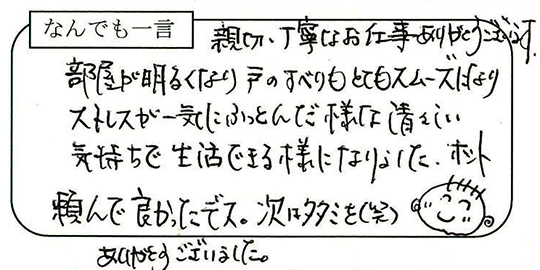 なんでも一言
親切、丁寧なお仕事ありがとうございます。
部屋が明るくなり戸のすべりもとてもスムーズになり
ストレスが一気にふっとんだ様な清々しい
気持ちで生活できる様になりました。ホント
頼んで良かったデス。次はタタミを(笑)
ありがとうございました。